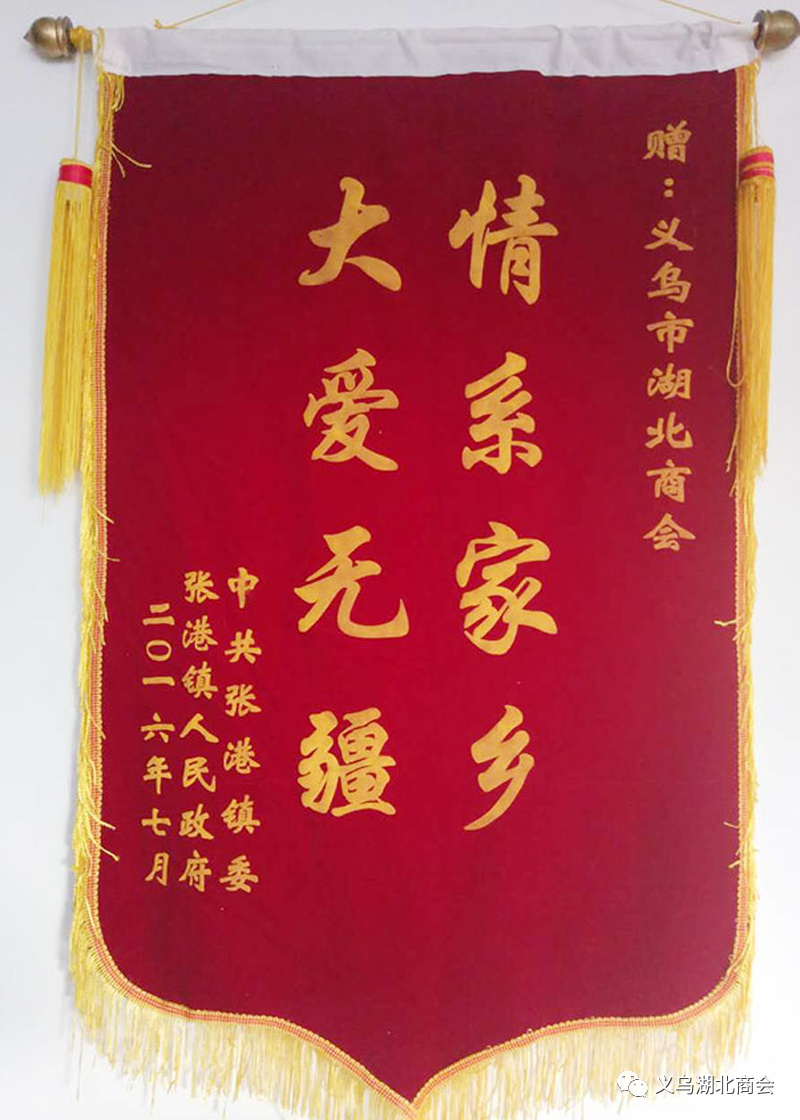 赠：义乌市湖北商会
情系家乡
大爱无疆
中共张港镇委
张港镇人民政府
二〇一六年七月
义乌湖北商会